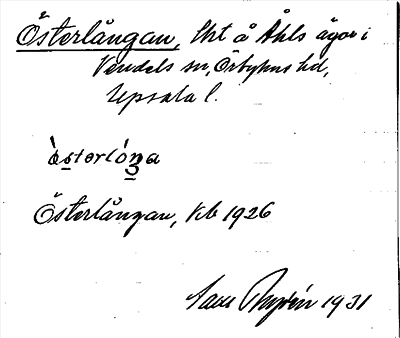 Österlångan, Lht å Åhls ägor i
Vendels sn, Örbyhus hd,
Upsala l.
òsterlóŋa
Österlångan, Kb 1926
1931